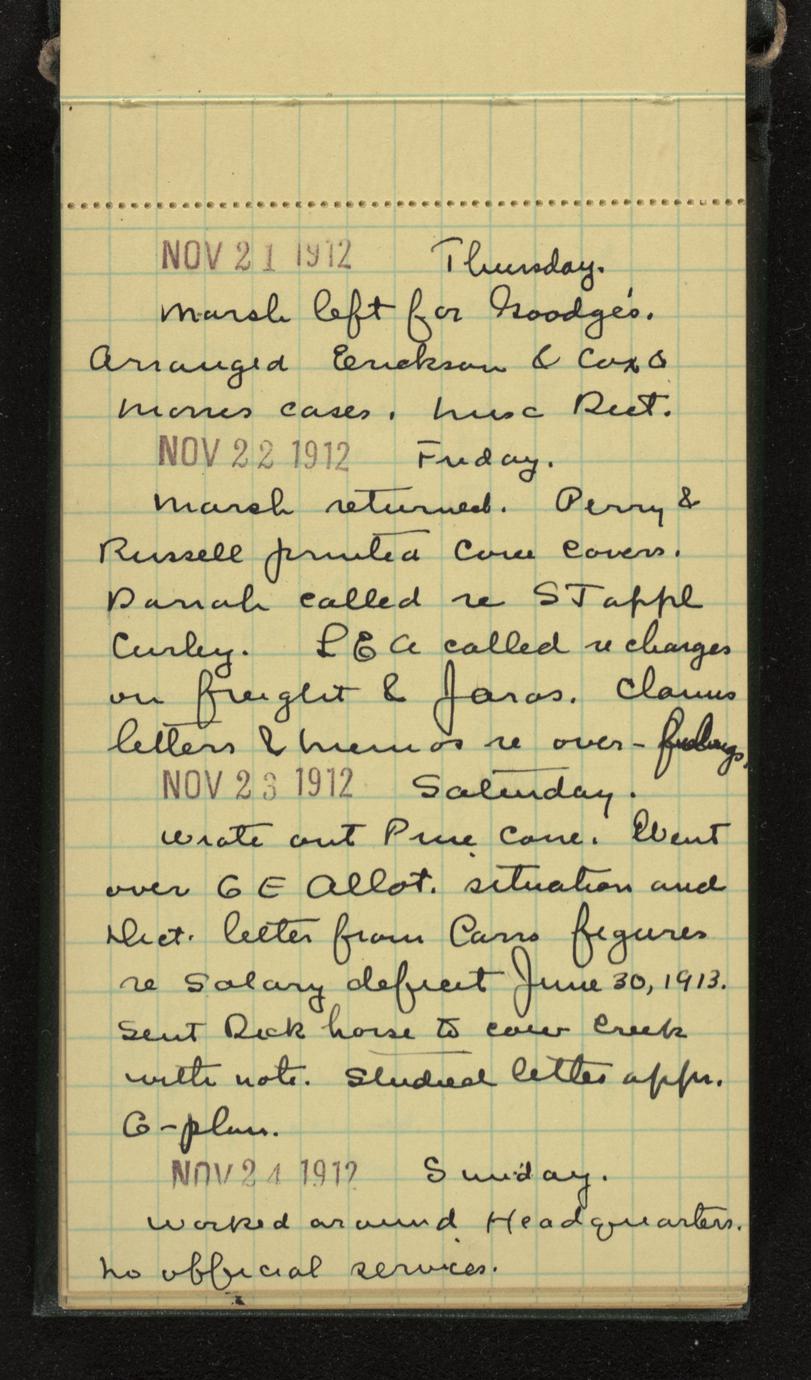 NOV 21 1912 Thursday.
Marsh left for Goodge's.
Arranged Erickson & Cox &
Morris cases. Misc Dict.
NOV 22 1912 Friday.
Marsh returned. Perry &
Russell printed Cone covers.
Darrah called re ST appl
Curley. LEA called re charges
on freight & Jaros. Claims
letters & memos re over-
NOV 23 1912 Saturday.
Wrote out Pine Cone. Went
over G E Allot. situation and
Dict. letter from figures
re Salary deficit June 30, 1913.
Sent Dick horse to cow Creek
with note. Studied letter appr.
G-plan.
NOV 24 1912 Sunday.
Worked around Headquarters.
No official services.